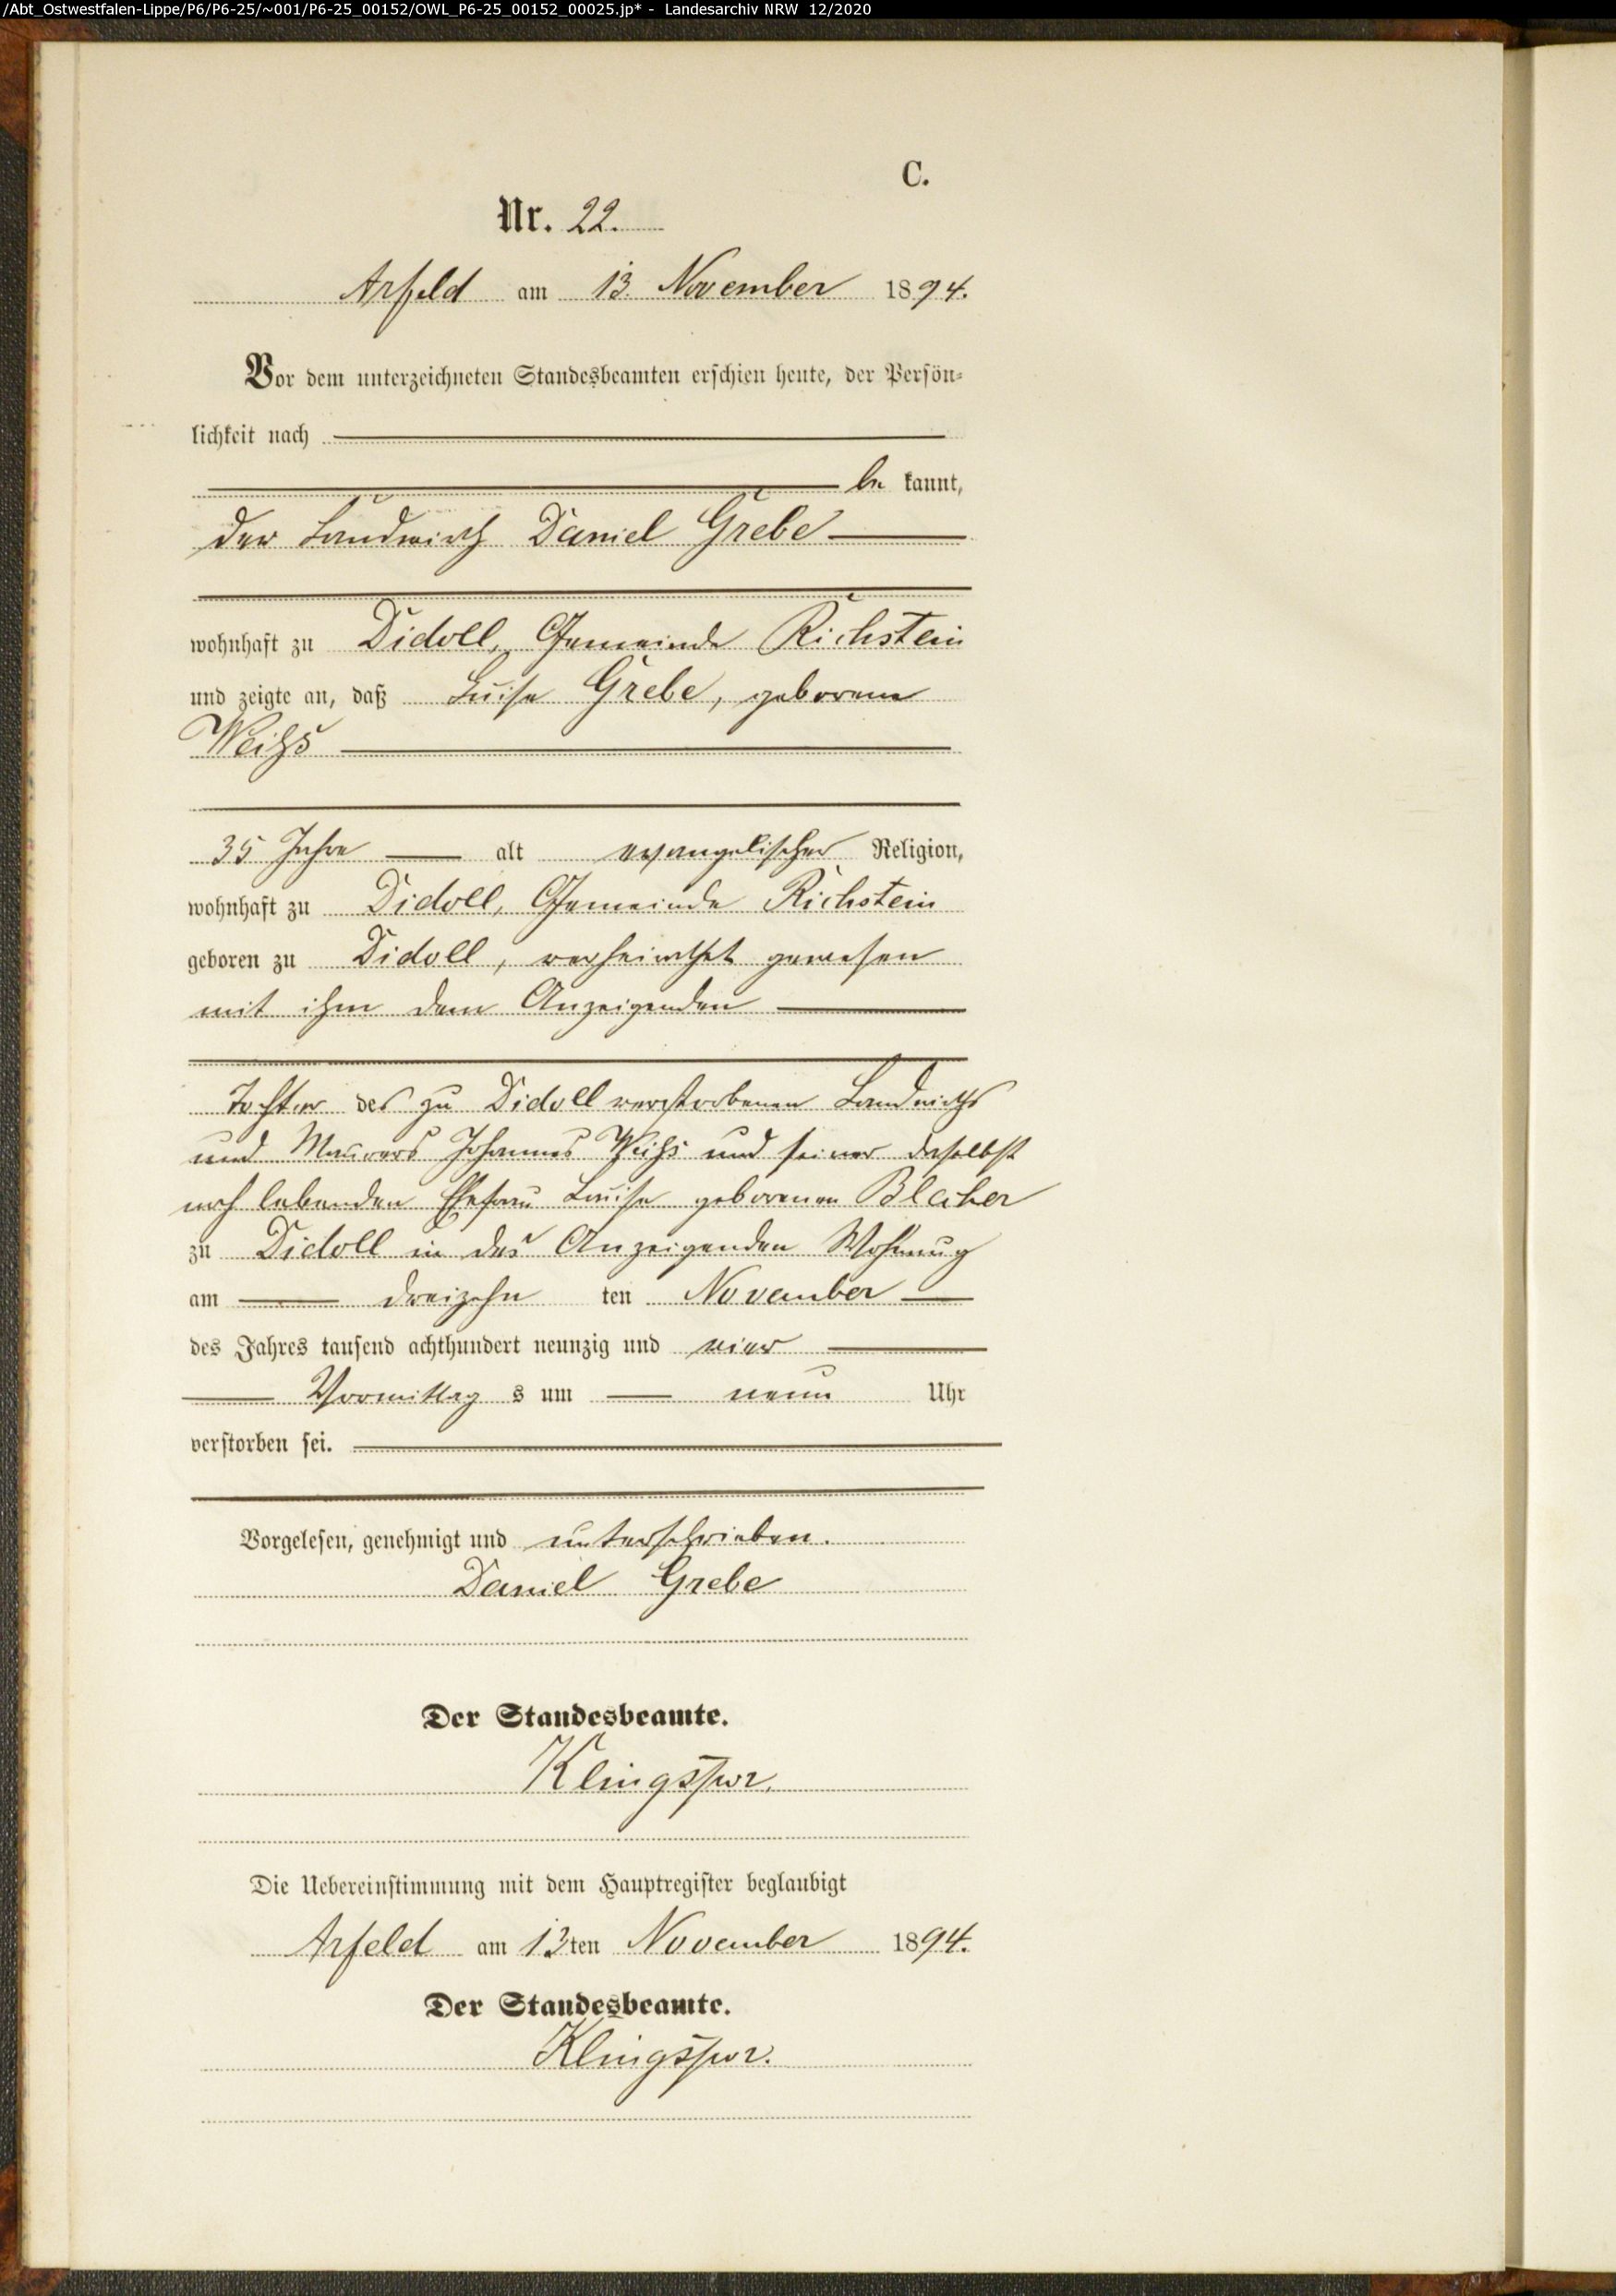 /Abt_Ostwestfalen-Lippe/P6/P6-25/~001/P6-25_00152/OWL_P6-25_00152_00025.jp* - Landesarchiv NRW 12/2020
C.
Nr. 22.
Arfeld am 13. November 1894.
Vor dem unterzeichneten Standesbeamten erschien heute, der Persön-
lichkeit nach
be kannt,
der Landwirth Daniel Grebe
wohnhaft zu Didoll, Gemeinde Richstein
und zeigte an, daß Luise Grebe, geborene
Weihs
35 Jahre alt evangelischer Religion,
wohnhaft zu Didoll, Gemeinde Richstein
geboren zu Didoll, verheirathet gewesen
mit ihm dem Anzeigenden
Tochter des zu Didoll verstorbenen Landwirths
und Maurers Johannes Weihs und seiner daselbst
noch lebenden Ehefrau Luise geborenen Blecher
zu Didoll in des Anzeigenden Wohnung
am dreizehn ten November
des Jahres tausend achthundert neunzig und vier
Vormittag s um neun Uhr
verstorben sei.
Vorgelesen, genehmigt und unterschrieben.
Daniel Grebe
Der Standesbeamte.
Klingspor.
Die Uebereinstimmung mit dem Hauptregister beglaubigt
Arfeld am 13ten November 1894.
Der Standesbeamte.
Klingspor.